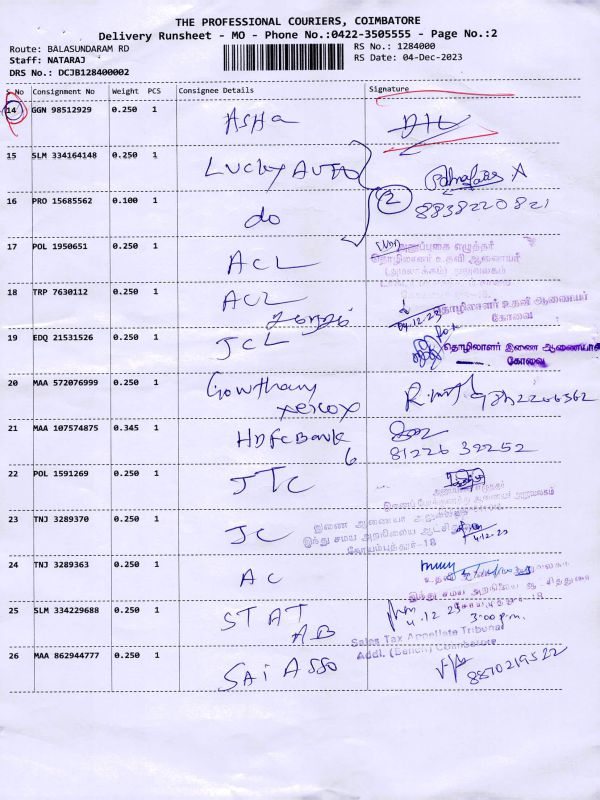 THE PROFESSIONAL COURIERS, COIMBATORE
Delivery Runsheet - MO - Phone No.:0422-3505555 - Page No.:2
Route: BALASUNDARAM RD
RS No.: 1284000
Staff: NATARAJ
RS Date: 04-Dec-2023
DRS No.: DCJB128400002
S.No Consignment No Weight PCS Consignee Details Signature
14 GGN 98512929 0.250 1 AsHa
15 SLM 334164148 0.250 1 Lucky AUTO
16 PRO 15685562 0.100 1 do 2 8838220821
17 POL 1950651 0.250 1 ACL
தொழிலாளர் உதவி ஆணையர்
18 TRP 7630112 0.250 1 ACL
தொழிலாளர் உதவி ஆணையர்
கோவை
04.12.23
19 EDQ 21531526 0.250 1 JCL
தொழிலாளர் இணை ஆணையர்
கோவை
20 MAA 572076999 0.250 1 Gowtham
xerox
21 MAA 107574875 0.345 1 HDFC Bank
6 81226 32252
22 POL 1591269 0.250 1 JTC
23 TNJ 3289370 0.250 1 JC
இந்து சமய அறநிலைய ஆட்சித்துறை
கோயம்புத்தூர்-18
4.12.23
24 TNJ 3289363 0.250 1 AC
இந்து சமய அறநிலைய ஆட்சித்துறை
25 SLM 334229688 0.250 1 STAT
AB
4.12.23
3.00 p.m.
Sales Tax Appellate Tribunal
Addl. (Bench) Coimbatore
26 MAA 862944777 0.250 1 SAi ASSO
8870219522